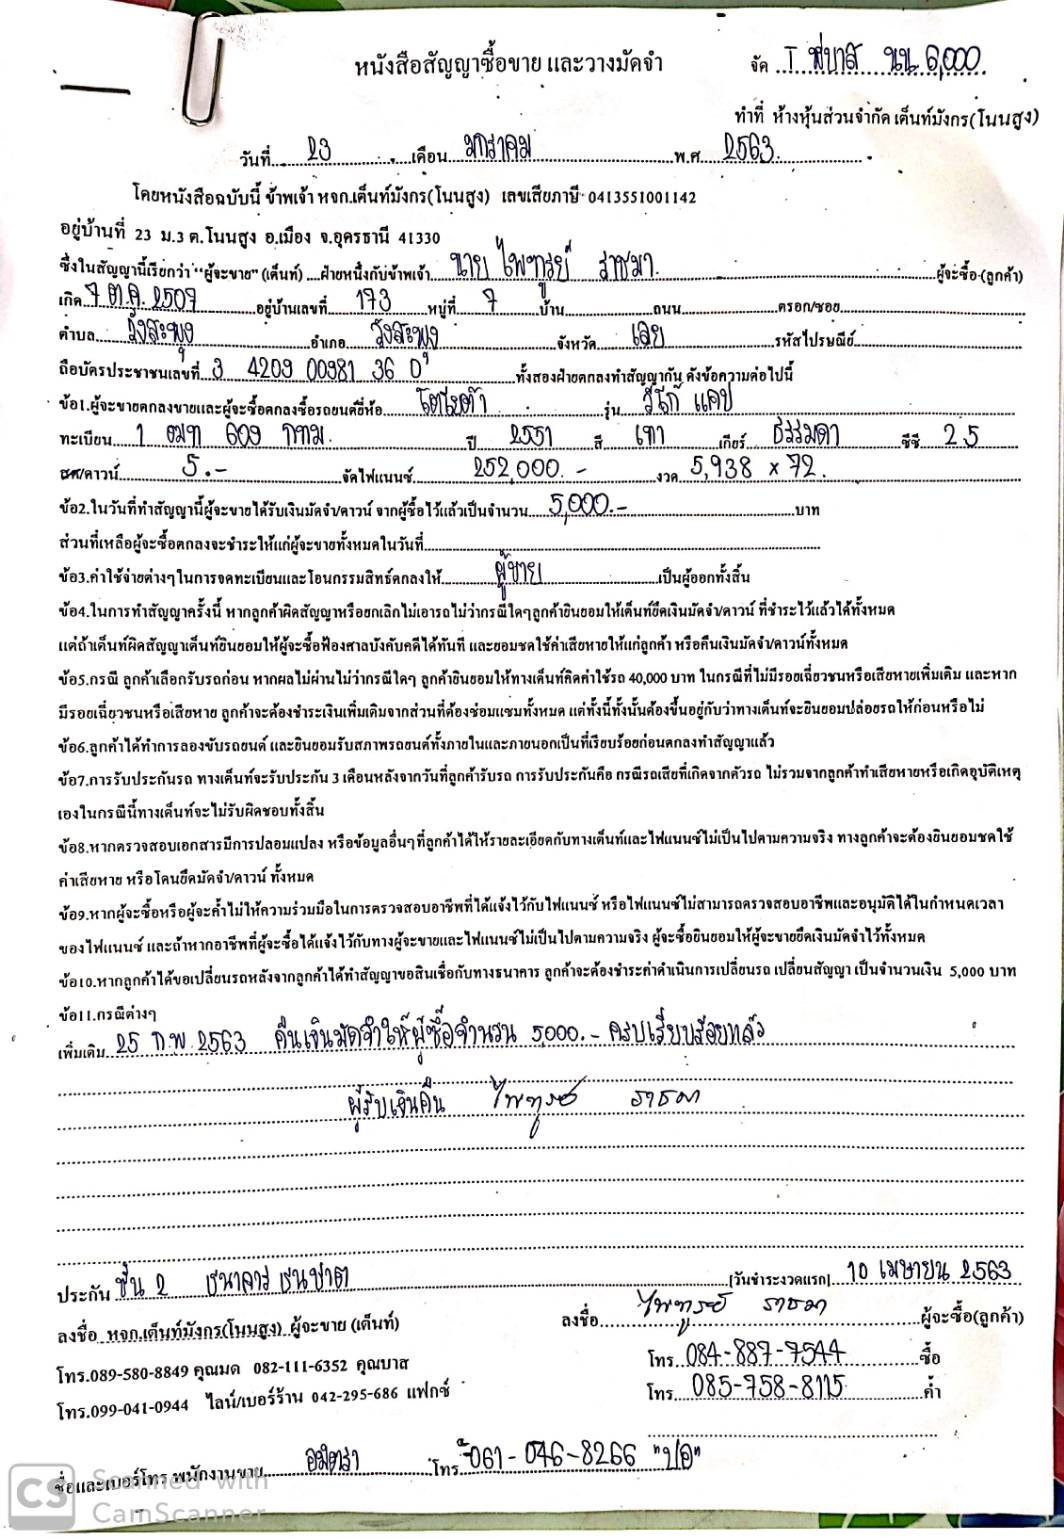 หนังสือสัญญาซื้อขาย และวางมัดจำ
จัด T พี่บาส นน 6,000
ทำที่ ห้างหุ้นส่วนจำกัด เต็นท์มังกร(โนนสูง)
วันที่ 23 เดือน มกราคม พ.ศ 2563.
โดยหนังสือฉบับนี้ ข้าพเจ้า หจก.เต็นท์มังกร(โนนสูง) เลขเสียภาษี 0413551001142
อยู่บ้านที่ 23 ม.3 ต.โนนสูง อ.เมือง จ.อุดรธานี 41330
ซึ่งในสัญญานี้เรียกว่า "ผู้จะขาย" (เต็นท์) ....ฝ่ายหนึ่งกับข้าพเจ้า นาย ไพฑูรย์ ราชมา ผู้จะซื้อ(ลูกค้า)
เกิด 7 ต.ค. 2507 อยู่บ้านเลขที่ 173 หมู่ที่ 7 บ้าน ถนน ตรอก/ซอย
ตำบล วังสะพุง อำเภอ วังสะพุง จังหวัด เลย รหัสไปรษณีย์
ถือบัตรประชาชนเลขที่ 3 4209 00981 36 0 ทั้งสองฝ่ายตกลงทำสัญญากัน ดังข้อความต่อไปนี้
ข้อ1.ผู้จะขายตกลงขายและผู้จะซื้อตกลงซื้อรถยนต์ยี่ห้อ โตโยต้า รุ่น วีโก้ แคป
ทะเบียน 1 ฒฑ 609 กทม. ปี 2551 สี เทา เกียร์ ธรรมดา ซีซี 2.5
สด/ดาวน์ 5.- จัดไฟแนนซ์ 252,000.- งวด 5,938 x 72.
ข้อ2.ในวันที่ทำสัญญานี้ผู้จะขายได้รับเงินมัดจำ/ดาวน์ จากผู้ซื้อไว้แล้วเป็นจำนวน 5,000.- บาท
ส่วนที่เหลือผู้จะซื้อตกลงจะชำระให้แก่ผู้จะขายทั้งหมดในวันที่
ข้อ3.ค่าใช้จ่ายต่างๆในการจดทะเบียนและโอนกรรมสิทธิ์ตกลงให้ ผู้ขาย เป็นผู้ออกทั้งสิ้น
ข้อ4.ในการทำสัญญาครั้งนี้ หากลูกค้าผิดสัญญาหรือยกเลิกไม่เอารถไม่ว่ากรณีใดๆลูกค้ายินยอมให้เต็นท์ยึดเงินมัดจำ/ดาวน์ ที่ชำระไว้แล้วได้ทั้งหมด
แต่ถ้าเต็นท์ผิดสัญญาเต็นท์ยินยอมให้ผู้จะซื้อฟ้องศาลบังคับคดีได้ทันที และยอมชดใช้ค่าเสียหายให้แก่ลูกค้า หรือคืนเงินมัดจำ/ดาวน์ทั้งหมด
ข้อ5.กรณี ลูกค้าเลือกรับรถก่อน หากผลไม่ผ่านไม่ว่ากรณีใดๆ ลูกค้ายินยอมให้ทางเต็นท์คิดค่าใช้รถ 40,000 บาท ในกรณีที่ไม่มีรอยเฉี่ยวชนหรือเสียหายเพิ่มเติม และหาก
มีรอยเฉี่ยวชนหรือเสียหาย ลูกค้าจะต้องชำระเงินเพิ่มเติมจากส่วนที่ต้องซ่อมแซมทั้งหมด แต่ทั้งนี้ทั้งนั้นต้องขึ้นอยู่กับว่าทางเต็นท์จะยินยอมปล่อยรถให้ก่อนหรือไม่
ข้อ6.ลูกค้าได้ทำการลองขับรถยนต์ และยินยอมรับสภาพรถยนต์ทั้งภายในและภายนอกเป็นที่เรียบร้อยก่อนตกลงทำสัญญาแล้ว
ข้อ7.การรับประกันรถ ทางเต็นท์จะรับประกัน 3 เดือนหลังจากวันที่ลูกค้ารับรถ การรับประกันคือ กรณีรถเสียที่เกิดจากตัวรถ ไม่รวมจากลูกค้าทำเสียหายหรือเกิดอุบัติเหตุ
เองในกรณีนี้ทางเต็นท์จะไม่รับผิดชอบทั้งสิ้น
ข้อ8.หากตรวจสอบเอกสารมีการปลอมแปลง หรือข้อมูลอื่นๆที่ลูกค้าได้ให้รายละเอียดกับทางเต็นท์และไฟแนนซ์ไม่เป็นไปตามความจริง ทางลูกค้าจะต้องยินยอมชดใช้
ค่าเสียหาย หรือโดนยึดมัดจำ/ดาวน์ ทั้งหมด
ข้อ9.หากผู้จะซื้อหรือผู้จะค้ำไม่ให้ความร่วมมือในการตรวจสอบอาชีพที่ได้แจ้งไว้กับไฟแนนซ์ หรือไฟแนนซ์ไม่สามารถตรวจสอบอาชีพและอนุมัติได้ในกำหนดเวลา
ของไฟแนนซ์ และถ้าหากอาชีพที่ผู้จะซื้อได้แจ้งไว้กับทางผู้จะขายและไฟแนนซ์ไม่เป็นไปตามความจริง ผู้จะซื้อยินยอมให้ผู้จะขายยึดเงินมัดจำไว้ทั้งหมด
ข้อ10.หากลูกค้าได้ขอเปลี่ยนรถหลังจากลูกค้าได้ทำสัญญาขอสินเชื่อกับทางธนาคาร ลูกค้าจะต้องชำระค่าดำเนินการเปลี่ยนรถ เปลี่ยนสัญญา เป็นจำนวนเงิน 5,000 บาท
ข้อ11.กรณีต่างๆ
เพิ่มเติม 25 ก.พ. 2563 คืนเงินมัดจำให้ผู้ซื้อจำนวน 5,000.- ครบเรียบร้อยแล้ว
ผู้รับเงินคืน ไพฑูรย์ ราชมา
ประกัน ชั้น 2 ธนาคาร ธนชาต (วันชำระงวดแรก) 10 เมษายน 2563
ลงชื่อ หจก.เต็นท์มังกร(โนนสูง) ผู้จะขาย (เต็นท์) ลงชื่อ ไพฑูรย์ ราชมา ผู้จะซื้อ(ลูกค้า)
โทร.089-580-8849 คุณมด 082-111-6352 คุณบาส โทร. 084-887-7544 ซื้อ
โทร.099-041-0944 ไลน์/เบอร์ร้าน 042-295-686 แฟกซ์ โทร. 085-758-8115 ค้ำ
ชื่อและเบอร์โทร พนักงานขาย อมิตรา โทร 061-046-8266 "ปอ"
CS Scanned with
CamScanner